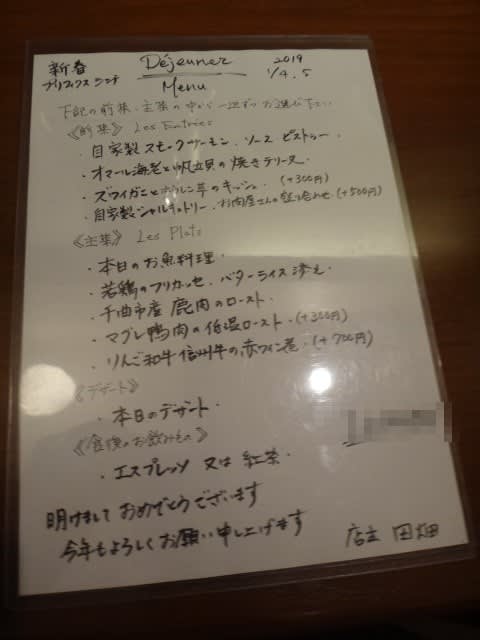 新春 Déjeuner 2019
プリフィクス ランチ Menu 1/4.5
下記の前菜、主菜の中から一品ずつお選び下さい
《前菜》 Les Entrées
・自家製スモークサーモン、ソース ピストゥー
・オマール海老と帆立貝の焼きテリーヌ
・ズワイガニとホウレン草のキッシュ (+300円)
・自家製シャルキュトリー、お肉屋さんの盛り合わせ (+500円)
《主菜》 Les Plats
・本日のお魚料理
・若鶏のフリカッセ、バターライス添え
・千曲市産 鹿肉のロースト
・マグレ鴨肉の低温ロースト (+300円)
・りんご和牛信州牛の赤ワイン煮 (+700円)
《デザート》
・本日のデザート
《食後のお飲みもの》
・エスプレッソ 又は 紅茶
明けまして おめでとうございます
今年もよろしくお願い申し上げます
店主 田畑